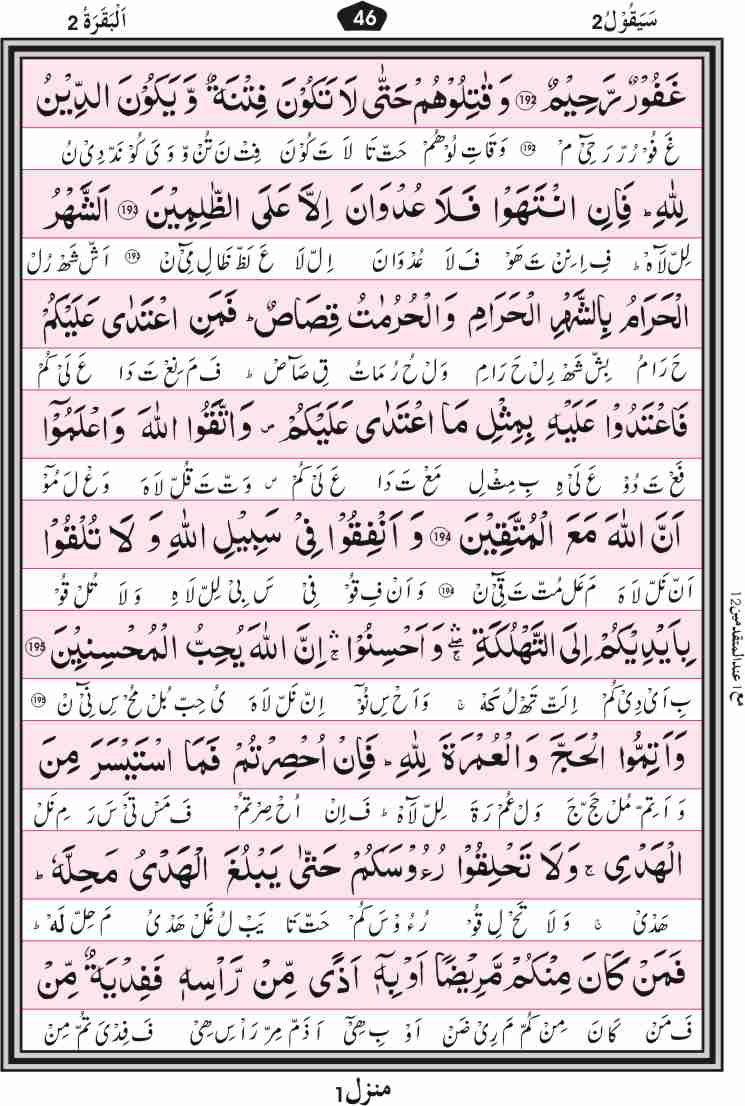 اَلْبَقَرَةُ 2
46
سَيَقُوْلُ2
غَفُوْرٌ رَّحِيْمٌ ۱۹۲ وَ قٰتِلُوْهُمْ حَتّٰى لَا تَكُوْنَ فِتْنَةٌ وَّ يَكُوْنَ الدِّيْنُ
غَ فُوْ رُرّ رَ حِىْٓ مْ ۱۹۲ وَ قَاتِ لُوْهُمْ حَتّ تَا لَا تَ كُوْنَ فِتْ نَ تُنْ وّ وَ ىَ كُوْ نَدْ دِىْ نُ
لِلّٰهِ ؕ فَاِنِ انْتَهَوْا فَلَا عُدْوَانَ اِلَّا عَلَى الظّٰلِمِيْنَ ۱۹۳ اَلشَّهْرُ
لِلّ لَآ هْ ؕ فَ اِ نِنْ تَ هَوْ فَ لَا عُدْوَانَ اِلّ لَا عَ لَظّ ظَالِ مِىْٓ نْ ۱۹۳ اَشّ شَهْ رُلْ
الْحَرَامُ بِالشَّهْرِ الْحَرَامِ وَالْحُرُمٰتُ قِصَاصٌ ؕ فَمَنِ اعْتَدٰى عَلَيْكُمْ
حَ رَامُ بِشّ شَهْ رِلْ حَ رَامِ وَلْ حُ رُمَاتُ قِ صَآصْ ؕ فَ مَ نِعْ تَ دَا عَ لَىْ كُمْ
فَاعْتَدُوْا عَلَيْهِ بِمِثْلِ مَا اعْتَدٰى عَلَيْكُمْ ۪ وَاتَّقُوا اللّٰهَ وَاعْلَمُوْٓا
فَعْ تَ دُوْ عَ لَىْ هِ بِ مِثْلِ مَعْ تَ دَا عَ لَىْ كُمْ ۪ وَتّ تَ قُلّ لَا هَ وَعْ لَ مُوْٓ
اَنَّ اللّٰهَ مَعَ الْمُتَّقِيْنَ ۱۹۴ وَ اَنْفِقُوْا فِىْ سَبِيْلِ اللّٰهِ وَ لَا تُلْقُوْا
اَنّ نَلّ لَا هَ مَ عَلْ مُتّ تَ قِىْٓ نْ ۱۹۴ وَ اَنْ فِ قُوْ فِىْ سَ بِىْ لِلّ لَا هِ وَ لَا تُلْ قُوْ
بِاَيْدِيْكُمْ اِلَى التَّهْلُكَةِ ۛۖ ج وَاَحْسِنُوْا ۛ اِنَّ اللّٰهَ يُحِبُّ الْمُحْسِنِيْنَ ۱۹۵
بِ اَىْ دِىْ كُمْ اِلَتّ تَهْ لُ كَهْ ج وَاَحْ سِ نُوْٓ اِنّ نَلّ لَا هَ ىُ حِبّ بُلْ مُحْ سِ نِىْٓ نْ ۱۹۵
وَاَتِمُّوا الْحَجَّ وَالْعُمْرَةَ لِلّٰهِ ؕ فَاِنْ اُحْصِرْتُمْ فَمَا اسْتَيْسَرَ مِنَ
وَ اَ تِمّ مُلْ حَجّ جَ وَلْ عُمْ رَ ةَ لِلّ لَآ هْ ؕ فَ اِنْ اُحْ صِرْ تُمْ فَ مَسْ تَىْ سَ رَ مِ نَلْ
الْهَدْىِ ۚ وَلَا تَحْلِقُوْا رُءُوْسَكُمْ حَتّٰى يَبْلُغَ الْهَدْىُ مَحِلَّهٗ ؕ
هَدْىْ ۚ وَ لَا تَحْ لِ قُوْ رُ ءُوْ سَ كُمْ حَتّ تَا يَبْ لُ غَلْ هَدْىُ مَ حِلّ لَهْ ؕ
فَمَنْ كَانَ مِنْكُمْ مَّرِيْضًا اَوْ بِهٖٓ اَذًى مِّنْ رَّاْسِهٖ فَفِدْيَةٌ مِّنْ
فَ مَنْ كَانَ مِنْ كُمْ مَ رِىْ ضَنْ اَوْ بِ هِىْٓ اَ ذَمّ مِرّ رَاْ سِ هِىْ فَ فِدْىَ تُمّ مِنْ
مع ۱ عند المتقدمین 12
منزل 1